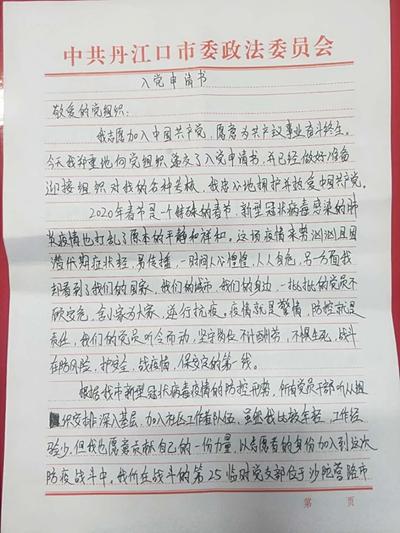 中共丹江口市委政法委员会
入党申请书
敬爱的党组织:
我志愿加入中国共产党,愿意为共产主义事业奋斗终生。
今天我郑重地向党组织递交了入党申请书,并已经做好准备
迎接组织对我的各种考核,我衷心地拥护并热爱中国共产党。
2020年春节是一个特殊的春节,新型冠状病毒感染的肺
炎疫情也打乱了原本的平静和祥和。这场疫情来势汹汹且因
潜伏期症状轻,易传播,一时间人心惶惶,人人自危,另一方面我
却看到了我们的国家,我们的城市,我们的身边,一批批的党员不
顾安危,舍小家为大家,逆行抗疫。疫情就是警情,防控就是
责任,我们的党员听令而动,坚守岗位不计酬劳,不惧生死,战斗
在防风险,护安全,战疫情,保安定的第一线。
根据我市新型冠状病毒疫情的防控形势,所有党员干部听从组
织安排深入基层,加入社区工作者队伍,虽然我比较年轻,工作经
验少,但我也愿意贡献自己的一份力量,以志愿者的身份加入到这次
防疫战斗中。我所在战斗的第25临时党支部位于沙陀营路市
第 页